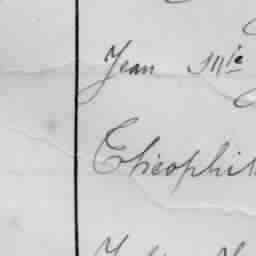 Jean M^ie
Théophil